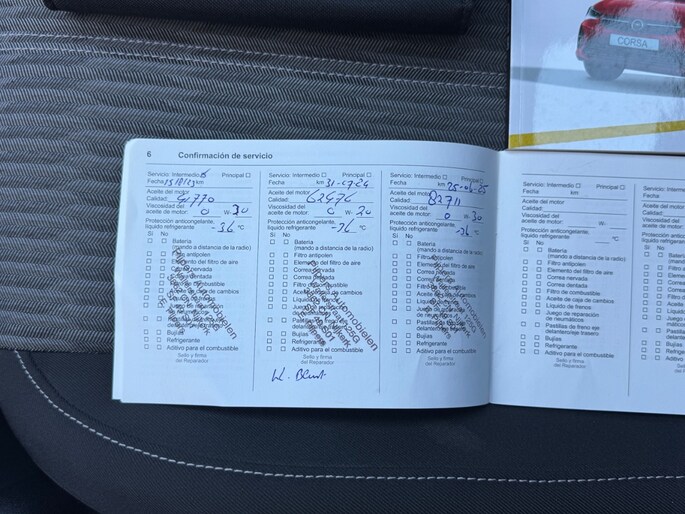 CORSA
6 Confirmación de servicio
Servicio: Intermedio Principal
Fecha km
Aceite del motor
Calidad: 41770
Viscosidad del
aceite de motor: 0 W- 30
Protección anticongelante,
líquido refrigerante -36 °C
Sí No
Batería
(mando a distancia de la radio)
Filtro antipolen
Elemento del filtro de aire
Correa nervada
Correa dentada
Filtro de combustible
Aceite de caja de cambios
Líquido de frenos
Juego de reparación
de neumáticos
Pastillas de freno eje
delantero/eje trasero:
Bujías
Refrigerante
Aditivo para el combustible
Sello y firma
del Reparador
Servicio: Intermedio Principal
Fecha km 31-07-24
Aceite del motor
Calidad: 62476
Viscosidad del
aceite de motor: 0 W- 20
Protección anticongelante,
líquido refrigerante °C
Sí No
Batería
(mando a distancia de la radio)
Filtro antipolen
Elemento del filtro de aire
Correa nervada
Correa dentada
Filtro de combustible
Aceite de caja de cambios
Líquido de frenos
Juego de reparación
de neumáticos
Pastillas de freno eje
delantero/eje trasero:
Bujías
Refrigerante
Aditivo para el combustible
Sello y firma
del Reparador
Servicio: Intermedio Principal
Fecha km 25-06-25
Aceite del motor
Calidad: 82711
Viscosidad del
aceite de motor: 0 W- 30
Protección anticongelante,
líquido refrigerante -36 °C
Sí No
Batería
(mando a distancia de la radio)
Filtro antipolen
Elemento del filtro de aire
Correa nervada
Correa dentada
Filtro de combustible
Aceite de caja de cambios
Líquido de frenos
Juego de reparación
de neumáticos
Pastillas de freno eje
delantero/eje trasero:
Bujías
Refrigerante
Aditivo para el combustible
Sello y firma
del Reparador
Servicio: Intermedio Principal
Fecha km
Aceite del motor
Calidad:
Viscosidad del
aceite de motor: W-
Protección anticongelante,
líquido refrigerante °C
Sí No
Batería
(mando a distancia de la radio)
Filtro antipolen
Elemento del filtro de aire
Correa nervada
Correa dentada
Filtro de combustible
Aceite de caja de cambios
Líquido de frenos
Juego de reparación
de neumáticos
Pastillas de freno eje
delantero/eje trasero:
Bujías
Refrigerante
Aditivo para el combustible
Sello y firma
del Reparador
Servicio: Inter
Fecha
Aceite del mot
Calidad:
Viscosidad del
aceite de moto
Protección an
líquido refriger
Sí No